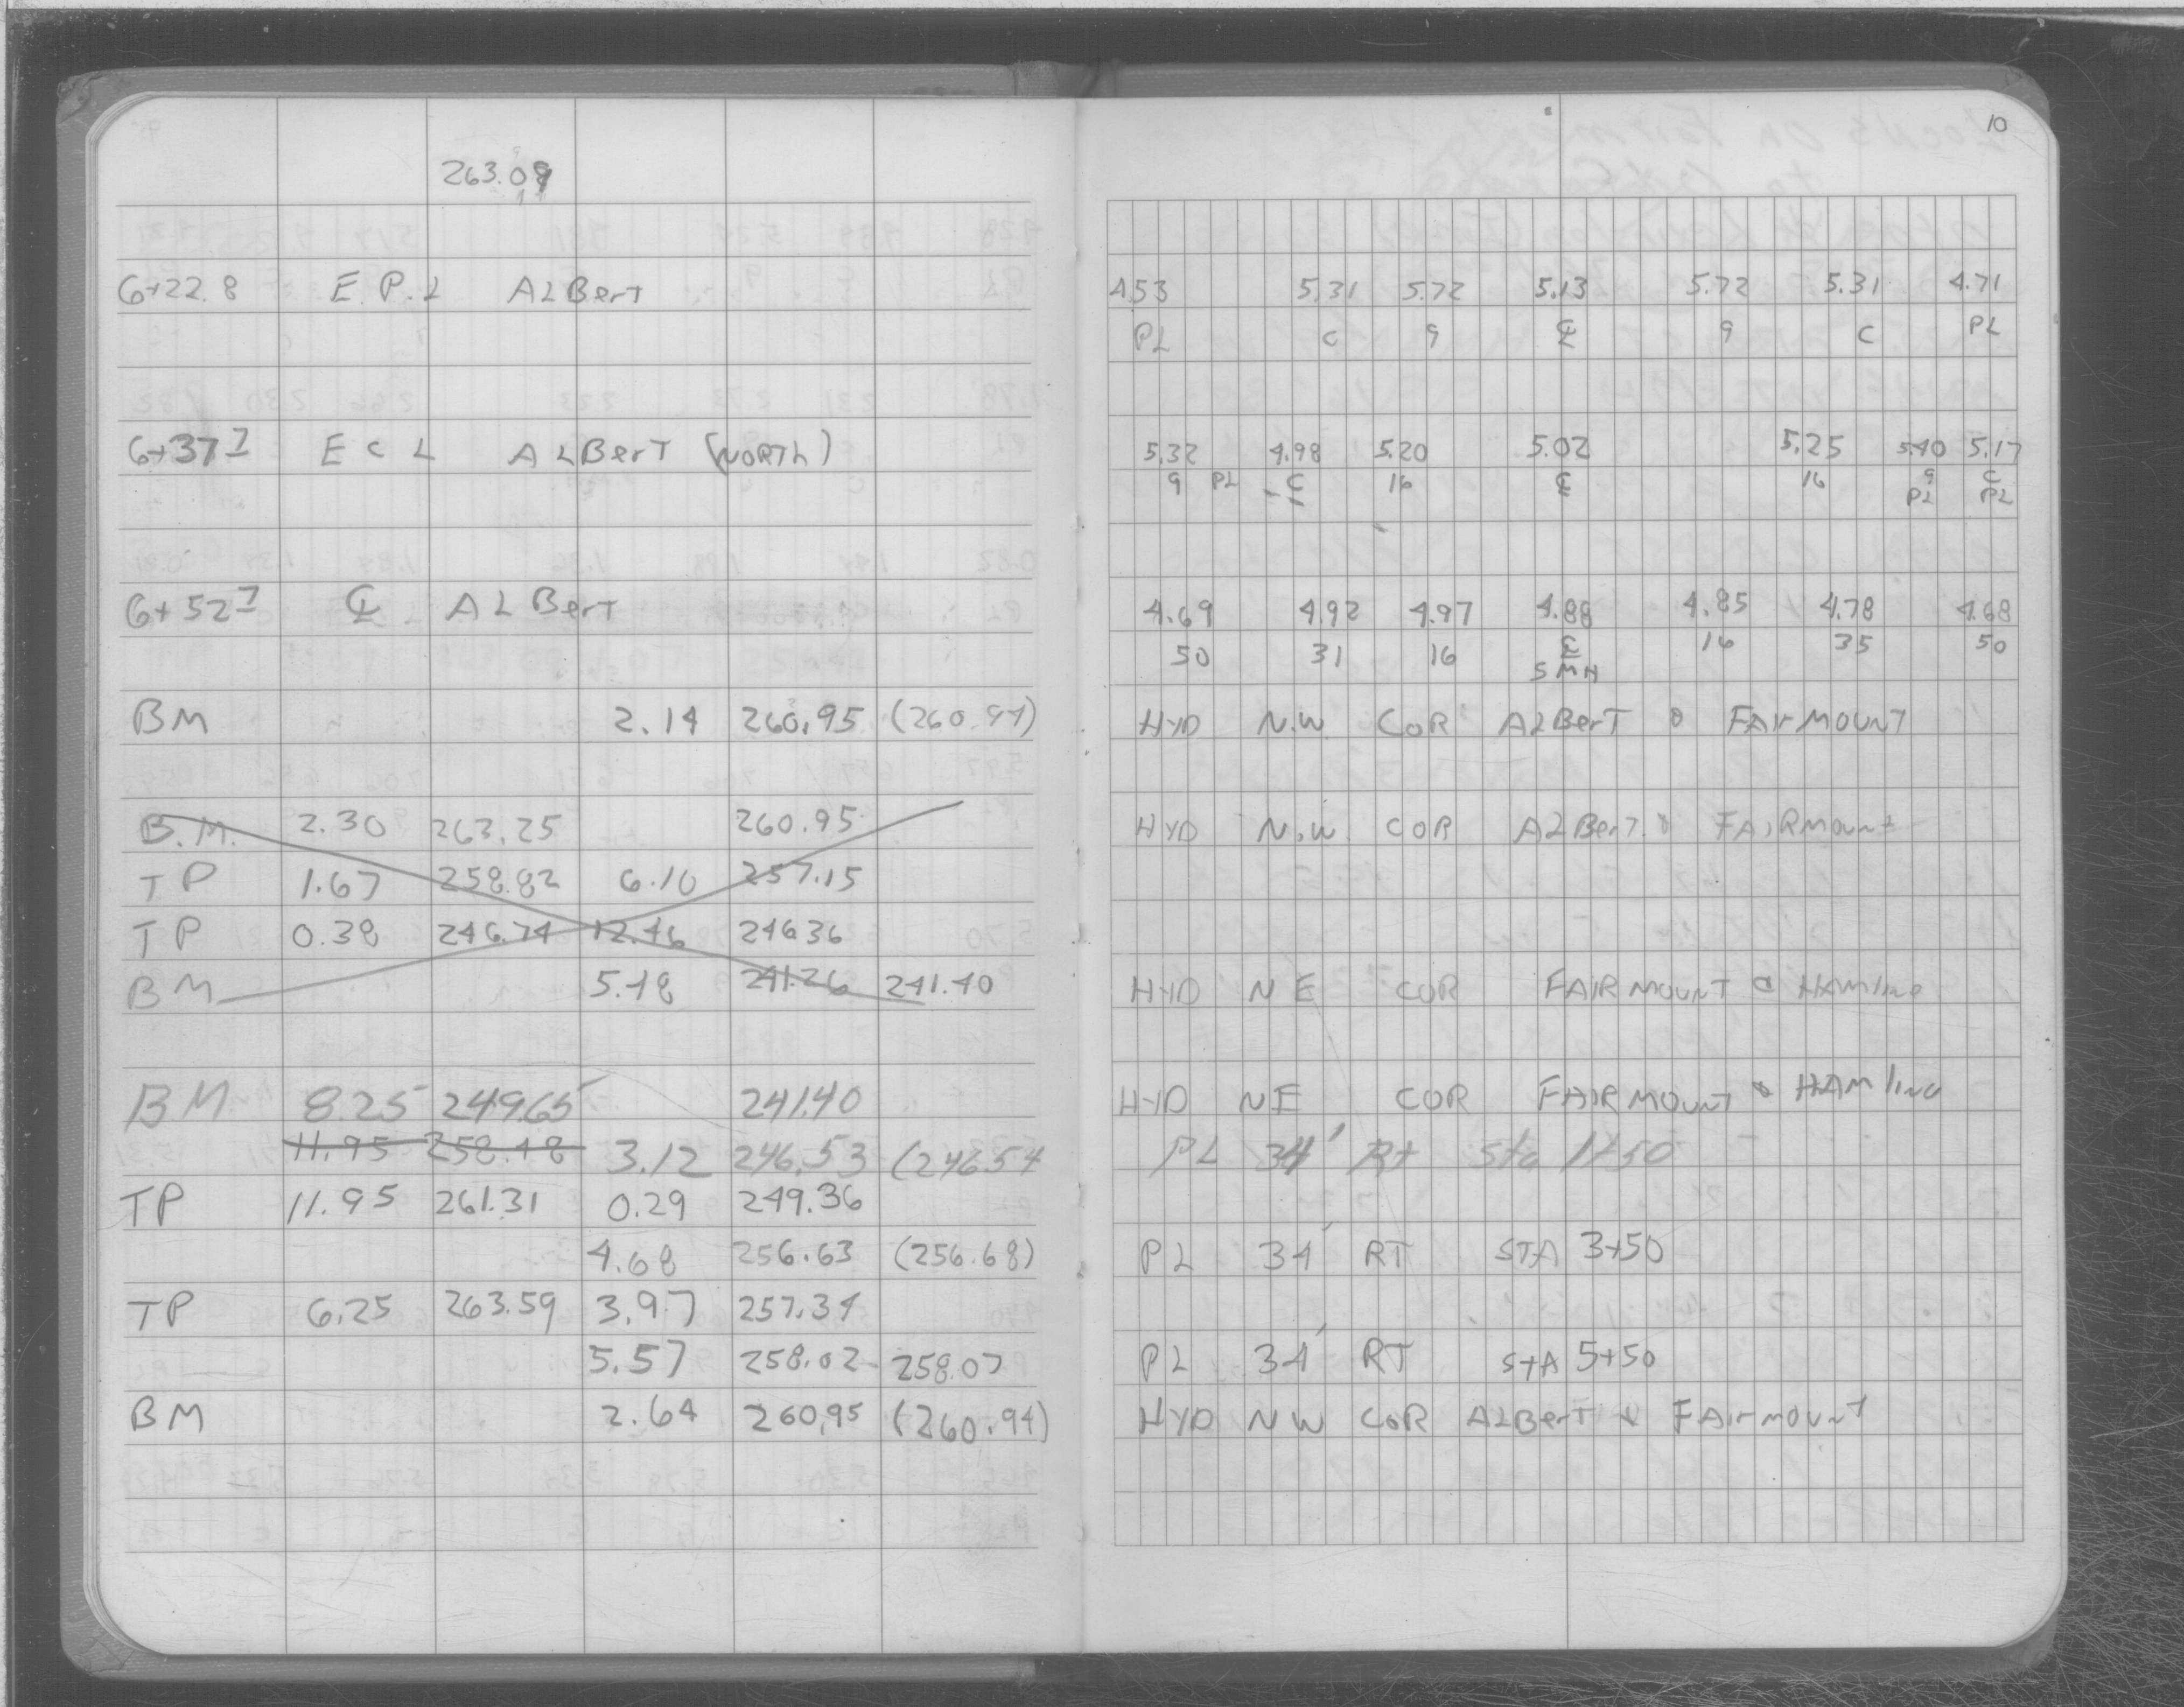 263.09
6+22.8 E.P.L ALBerT
6+37⁷ E C L ALBerT (NORTh)
6+52⁷ ℄ ALBerT
BM 2.14 260.95 (260.94)
B.M. 2.30 263.25 260.95
TP 1.67 258.82 6.10 257.15
TP 0.38 246.74 12.46 246.36
BM 5.48 241.26 241.40
BM 8.25 249.65 241.40
11.95 258.48 3.12 246.53 (246.54
TP 11.95 261.31 0.29 249.36
4.68 256.63 (256.68)
TP 6.25 263.59 3.97 257.34
5.57 258.02 258.07
BM 2.64 260.95 (260.94)
10
4.53 5.31 5.72 5.13 5.72 5.31 4.71
PL C 9 ℄ 9 C PL
5.32 4.98 5.20 5.02 5.25 5.40 5.17
9 PL C 16 ℄ 16 9 C
PL PL
4.69 4.92 4.97 4.88 4.85 4.78 4.68
50 31 16 ℄ 16 35 50
SMH
HYD N.W. COR ALBerT & FAIrMOUNT
HYD N.W. COR ALBerT & FAIRMount
HYD NE COR FAIRMOUNT & HAMline
HYD NE COR FAIRMOUNT & HAMline
PL 34' Rt Sta 1+50
PL 34' RT STA 3+50
PL 34' RT STA 5+50
HYD NW COR ALBerT & FAIrmOUNT